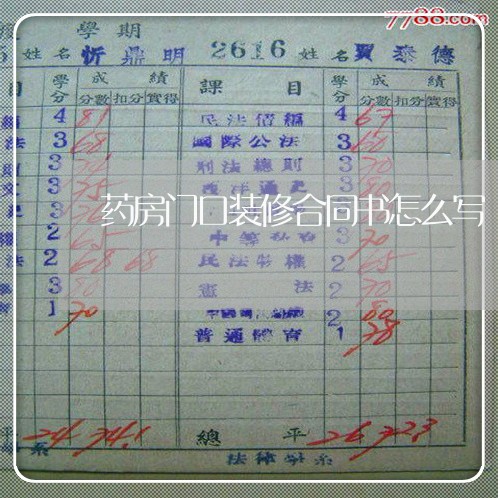 7788.com
學期
5 姓名 忻鼎明 2616 姓名 賈泰德
目 學分 成績 課目 學分 成績
分數 扣分 實得 分數 扣分 實得
4 81 民法債編 4 67
法 3 68 國際公法 3 60
3 刑法總則 3 70
3 75 西洋通史 3 80
药房门口装修合同书怎么写
2 65 3 70
法 2 68 68 民法物權 2 65
3 80 憲法 2 70
1 70 2 80
普通體育 1 78
平 24 74.1 總平 26 72.3
系 法律學系